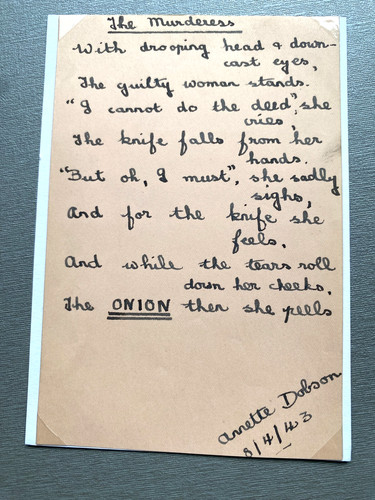 The Murderess
With drooping head & down-
cast eyes,
The guilty woman stands.
"I cannot do the deed", she
cries,
The knife falls from her
hands.
"But oh, I must", she sadly
sighs,
And for the knife she
feels.
And while the tears roll
down her cheeks.
The ONION then she peels
Annette Dobson
8/4/43